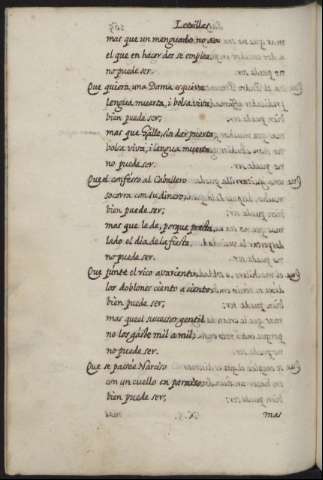 Letrillas
mas que un menguado no sea
el que en hacer dos se emplea
no puede ser.
Que quiera una Dama esquiva
lengua muerta, i bolsa viva
bien puede ser;
mas que halle, sin dar puerta
bolsa viva, i lengua muerta
no puede ser.
Que el confesso al Caballero
socorra con su dinero,
bien puede ser;
mas que le dè, porque presta
lado el dia de la fiesta
no puede ser.
Que junte el rico avariento
los doblones ciento a ciento
bien puede ser;
mas que el sucessor gentil
no los gaste mil a mil;
no puede ser.
Que se passèe Narciso
con un cuello en paraiso
bien puede ser;
mas